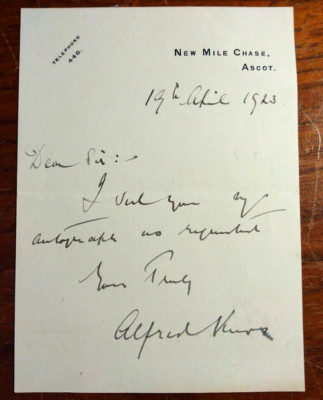 TELEPHONE
440.
NEW MILE CHASE,
ASCOT.
19th April 1923
Dear Sir:-
I send you my
autograph as requested
Yours Truly
Alfred